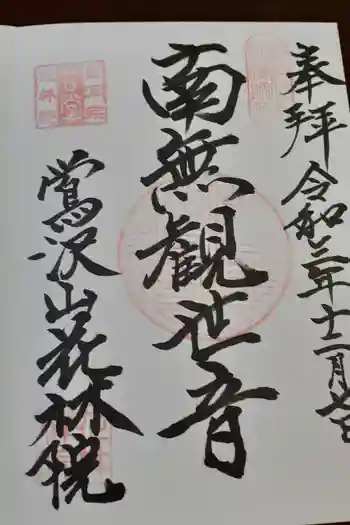 奉拝 令和三年十二月
南無観世音
鶯沢山花林院